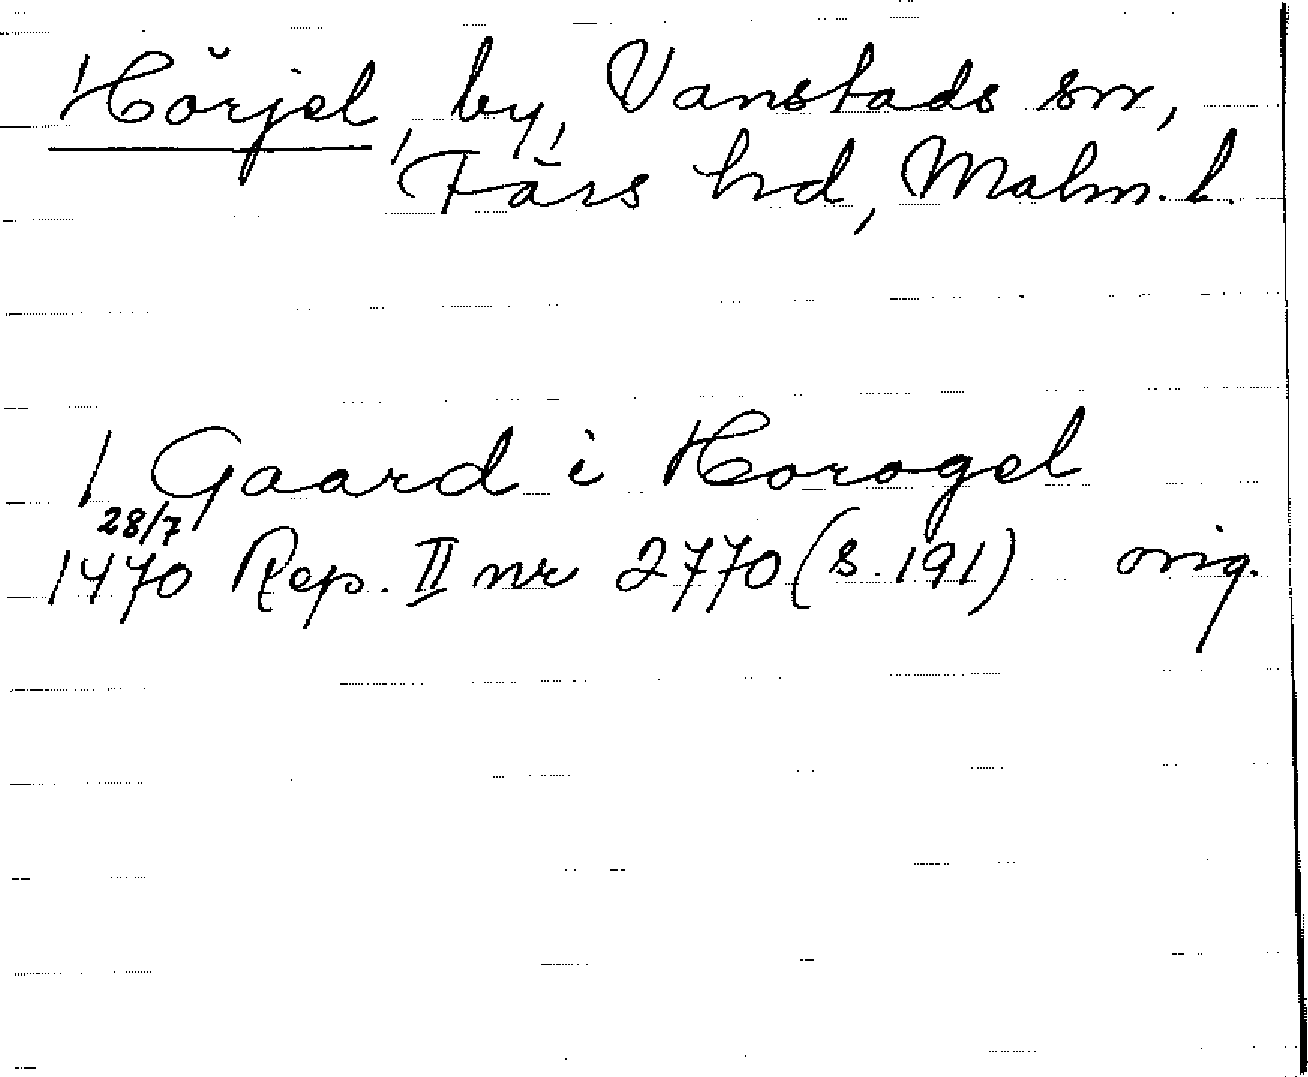 Hörjel, by, Vanstads sn,
Färs hd, Malm. l.
1 Gaard i Horogel
28/7
1470 Rep. II nr 2770 (s. 191) orig.